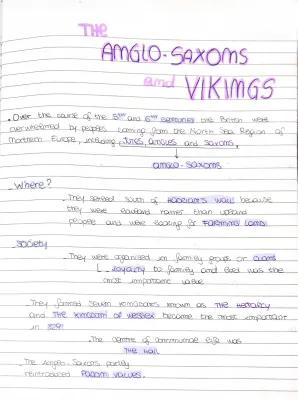 THE
ANGLO-SAXONS
and VIKINGS
. Over the course of the 5th and 6th centuries the British were
overwhelmed by peoples coming from the North Sea Region of
Northern Europe, including Jutes, Angles and Saxons.
ANGLO-SAXONS
_Where?
_They settled south of HADRIAN'S WALL because
they were lowland rather than upland
people and were looking for FARMING LAND.
_Society
_They were organised in family groups or CLANS
loyalty to family and lord was the
most important value
_They formed seven kingdoms known as THE HEPTARCHY
and THE KINGDOM OF WESSEX became the most important
in 829!
_The centre of communal life was
THE HALL
_The Anglo-Saxons partly
reintroduced PAGAN VALUES.